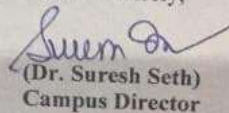 (Dr. Suresh Seth)
Campus Director